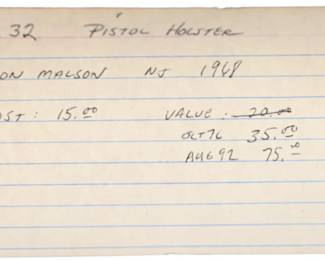 32 PISTOL HOLSTER
ON MALSON NJ 1968
OST: 15.00 VALUE: 20.00
OCT 76 35.00
AUG 92 75.00